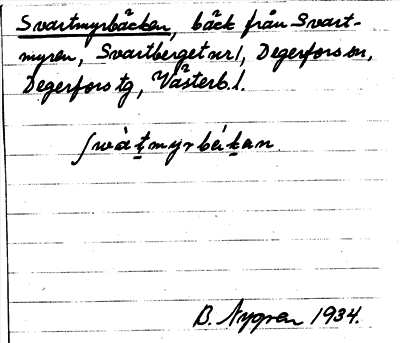 Svartmyrbäcken, bäck från Svart-
myren, Svartberget nr 1, Degerfors sn,
Degerfors tg, Västerb. l.
B. Nygren 1934.